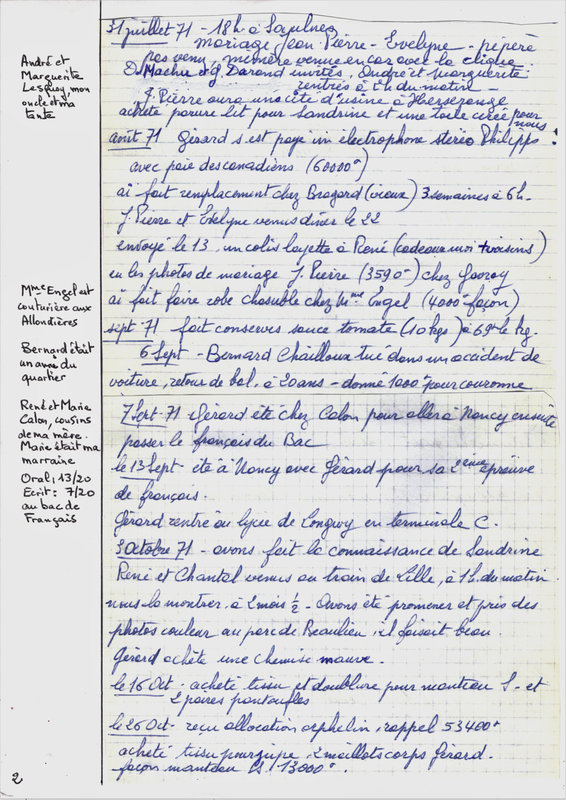 31 juillet 71 - 18h à Saulnes
mariage Jean Pierre - Evelyne - pépère
pas venu - mémère venue en car avec la clique
D. Machu et g. Darand invités, André et Marguerite
rentrés à 1h du matin -
J. Pierre aura une cité d'usine à Herserange
acheté parure lit pour Sandrine et une toile cirée pour nous
août 71 Gérard s'est payé un électrophone stéréo Philipps !
avec paie des canadiens (60000°)
ai fait remplacement chez Bragard (vieux) 3 semaines à 6h.
J. Pierre et Evelyne venus dîner le 22
envoyé le 13, un colis layette à René (cadeaux moi + voisins)
eu les photos de mariage J. Pierre (3590°) chez
ai fait faire robe chasuble chez Mme Engel (4000° façon)
sept 71 fait conserves sauce tomate (10 kgs) à 69° le kg.
6 Sept - Bernard Chailloux tué dans un accident de
voiture, retour de bal, à 20 ans - donné 1000° pour couronne
7 Sept 71 Gérard été chez Calon pour aller à Nancy ensuite
passer le français du Bac
le 13 Sept été à Nancy avec Gérard pour sa 2ème épreuve
de français.
Gérard rentre au lycée de Longwy en terminale C.
3 Octobre 71 - avons fait la connaissance de Sandrine
René et Chantal venus au train de Lille, à 1h. du matin
nous la montrer, à 2 mois ½ - Avons été promener et pris des
photos couleur au parc de Beaulieu, il faisait beau.
Gérard achète une chemise mauve.
le 16 Oct - acheté tissu et doublure pour manteau S. et
2 paires pantoufles
le 26 Oct - reçu allocation orphelin, rappel 53400°
acheté tissu pour jupe, 2 maillots corps Gérard.
façon manteau 13000°.
André et
Marguerite
Lesquoy, mon
oncle et ma
tante
Mme Engel est
couturière aux
Allondières
Bernard était
un ami du
quartier
René et Marie
Calon, cousins
de ma mère.
Marie était ma
marraine
Oral, 13/20
Ecrit : 7/20
au bac de
Français
2